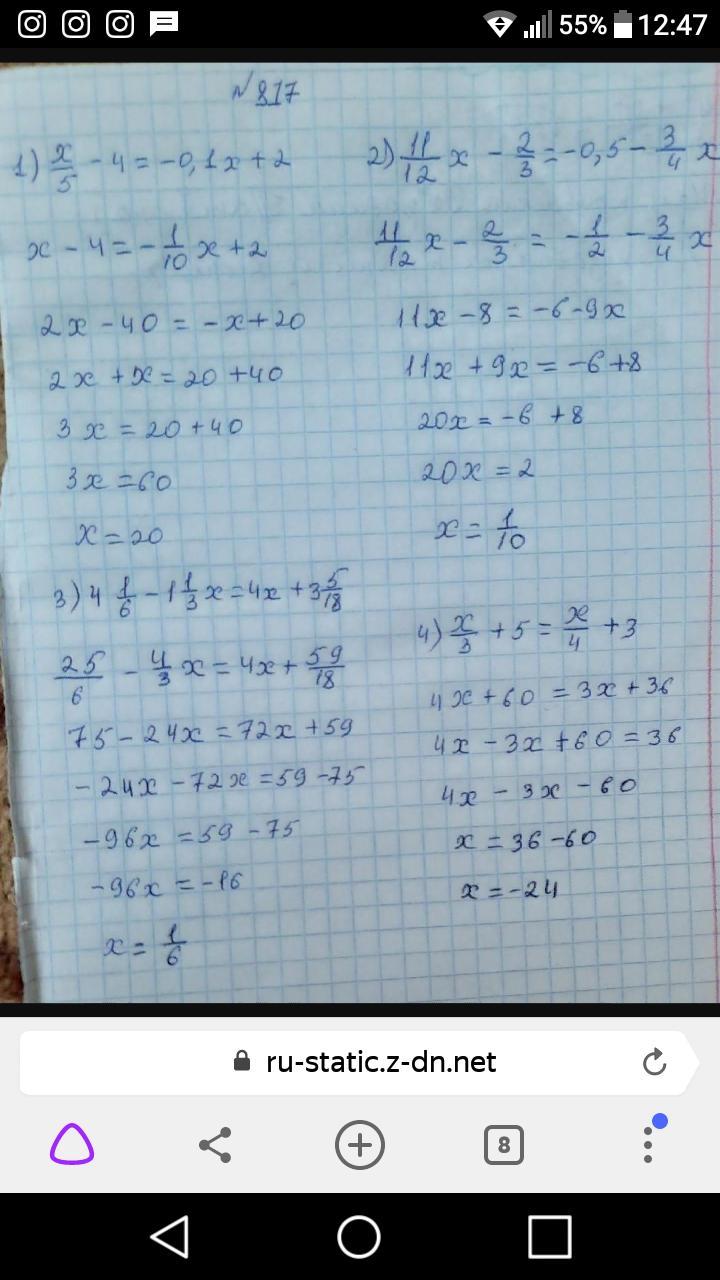 55% 12:47
№817
1) x/5 - 4 = -0,1x + 2
x - 4 = - 1/10 x + 2
2x - 40 = -x + 20
2x + x = 20 + 40
3x = 20 + 40
3x = 60
x = 20
2) 11/12 x - 2/3 = -0,5 - 3/4 x
11/12 x - 2/3 = - 1/2 - 3/4 x
11x - 8 = -6 - 9x
11x + 9x = -6 + 8
20x = -6 + 8
20x = 2
x = 1/10
3) 4 1/6 - 1 1/3 x = 4x + 3 5/18
25/6 - 4/3 x = 4x + 59/18
75 - 24x = 72x + 59
- 24x - 72x = 59 - 75
-96x = 59 - 75
-96x = -16
x = 1/6
4) x/3 + 5 = x/4 + 3
4x + 60 = 3x + 36
4x - 3x + 60 = 36
4x - 3x - 60
x = 36 - 60
x = -24
ru-static.z-dn.net
8